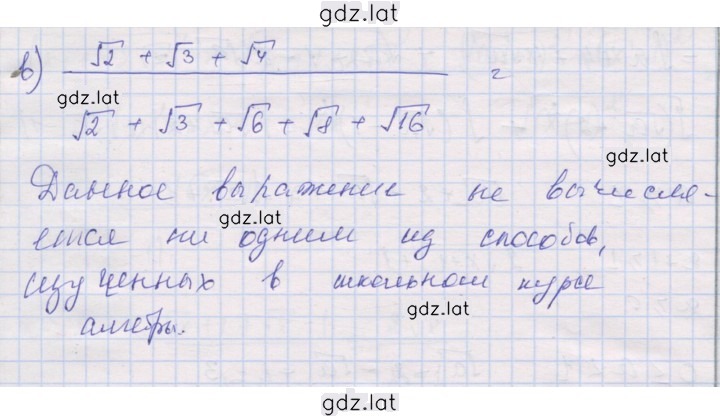 gdz.lat
в) (√2 + √3 + √4) / (√2 + √3 + √6 + √8 + √16) =
gdz.lat
gdz.lat
Данное выражение не вычисля-
gdz.lat
ется ни одним из способов,
изученных в школьном курсе
gdz.lat
gdz.lat
алгебры.
gdz.lat